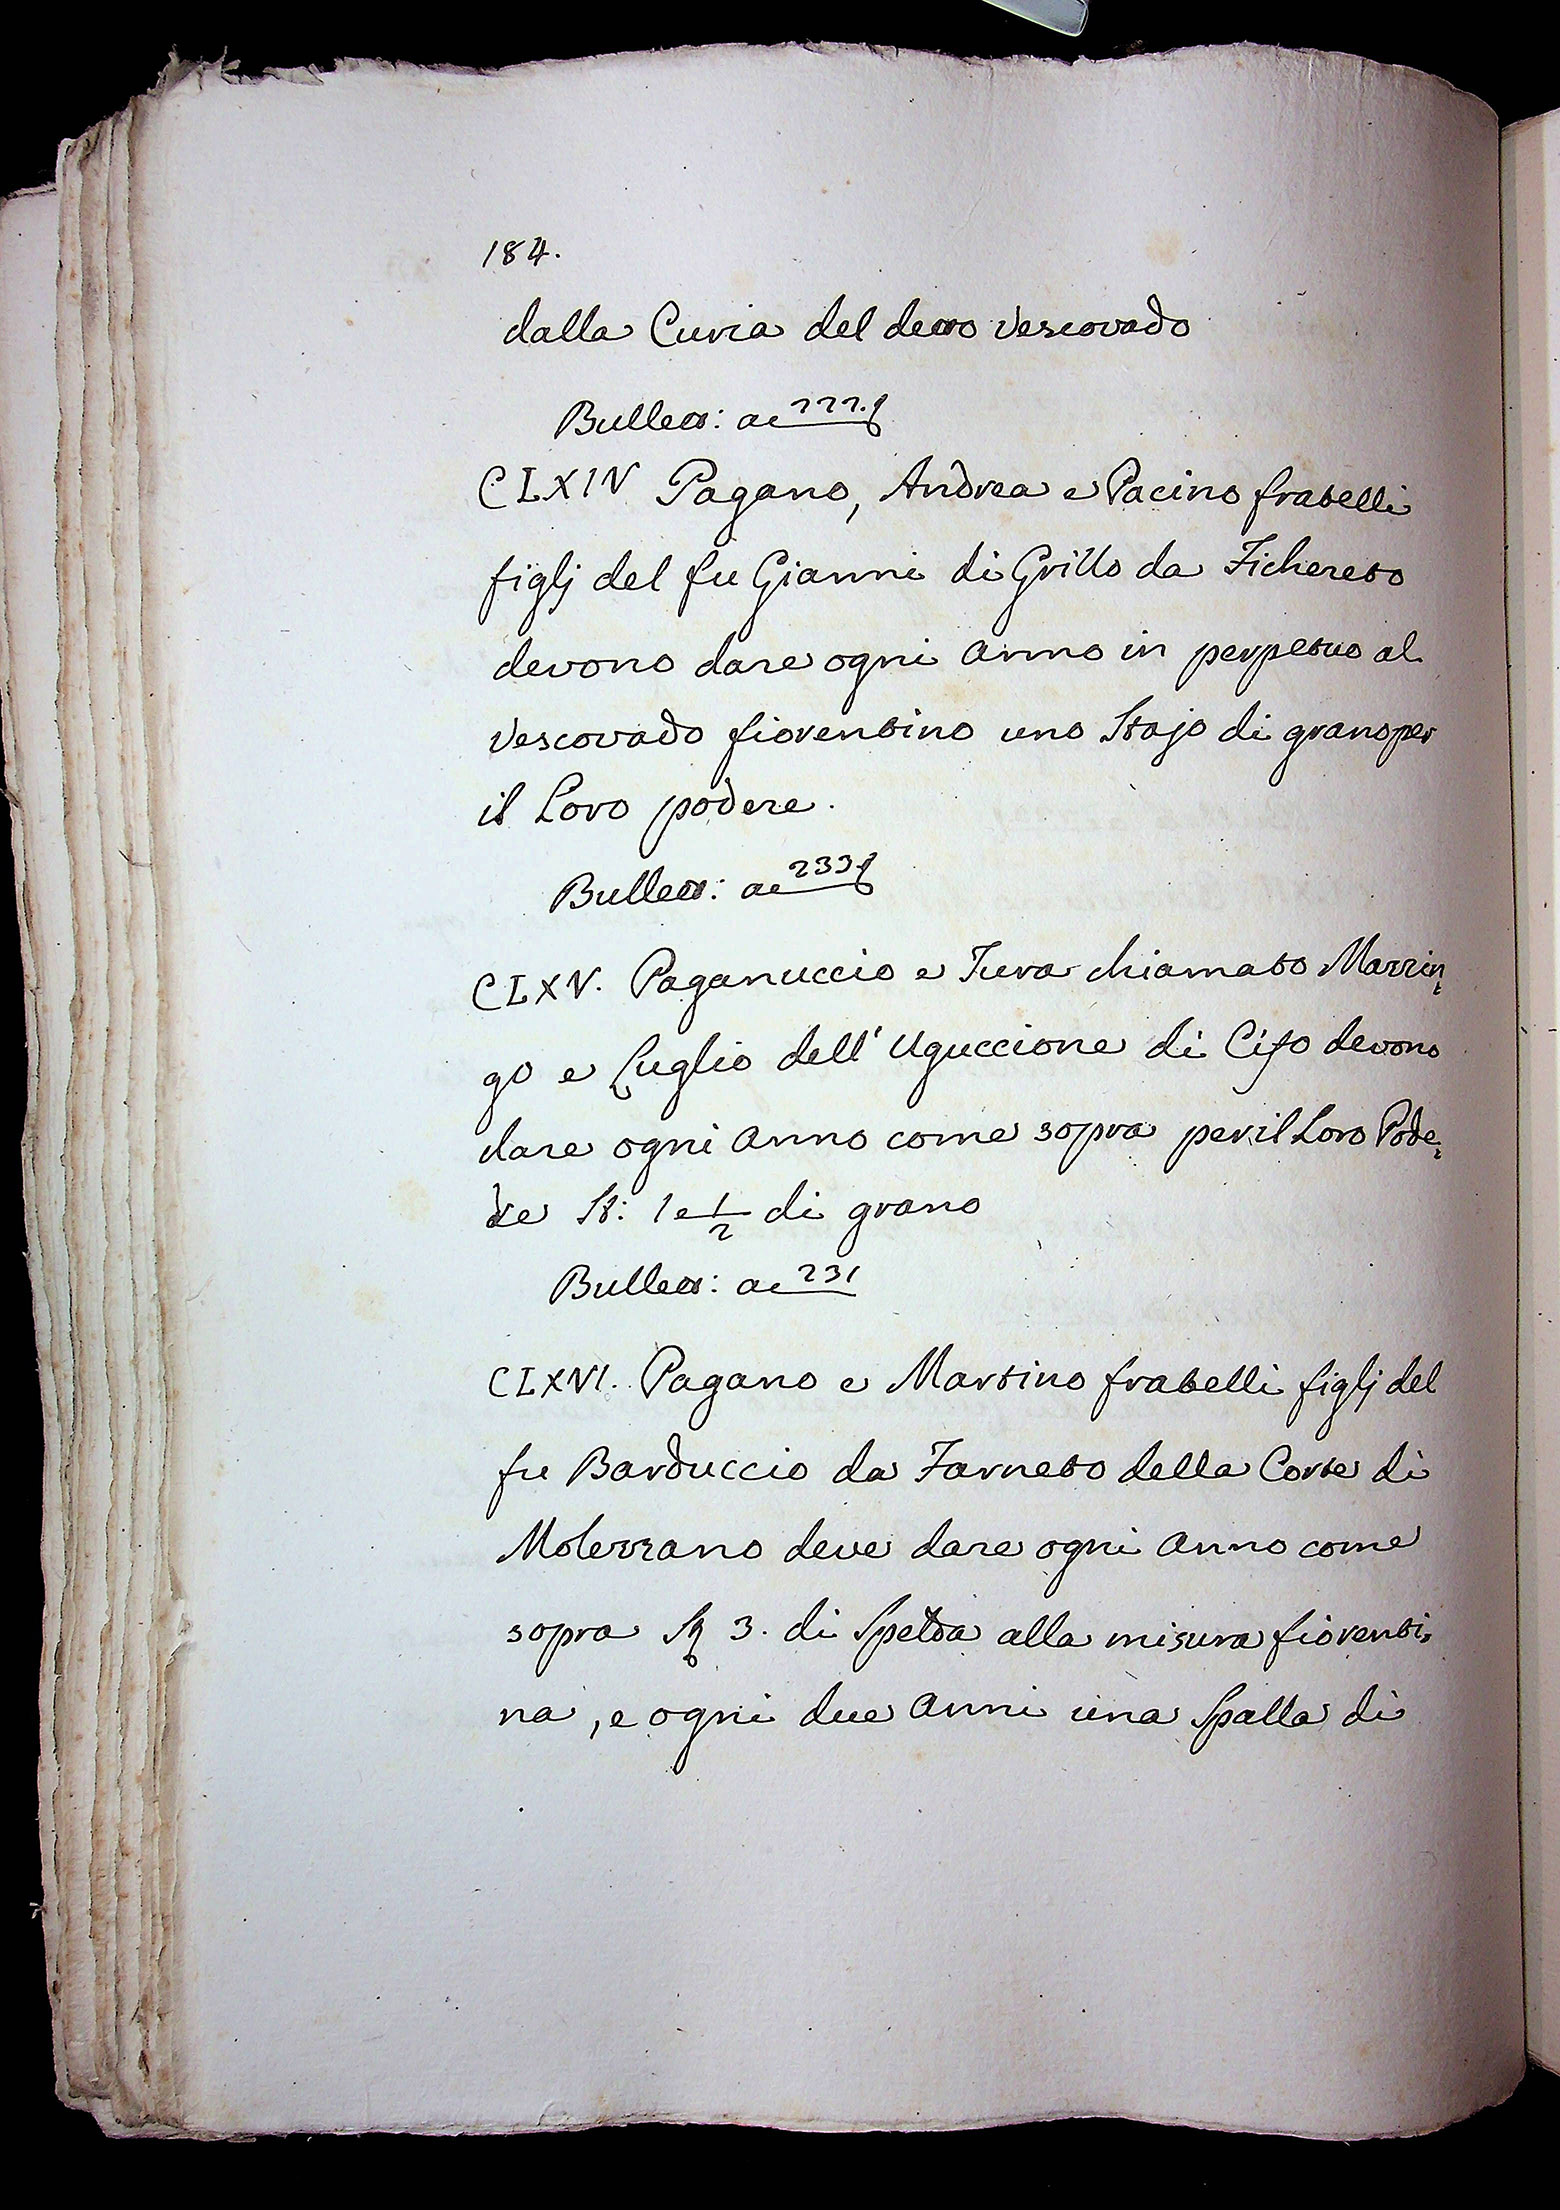 184.
dalla Curia del detto Vescovado
Bullett: ac 222.
CLXIV Pagano, Andrea e Pacino fratelli
figlj del fu Gianni di Grillo da Fichereto
devono dare ogni anno in perpetuo al
Vescovado fiorentino uno Stajo di grano per
il Loro podere.
Bullett: ac 233
CLXV. Paganuccio e Tura chiamato Mazzin,
go e Luglio dell' Uguccione di Cifo devono
dare ogni anno come sopra per il Loro Pode,
re St: 1 e 1/2 di grano
Bullett: ac 231
CLXVI. Pagano e Martino fratelli figlj del
fu Barduccio da Farneto della Corte di
Molezzano deve dare ogni anno come
sopra St 3. di Spelda alla misura fiorenti,
na, e ogni due anni una Spalla di